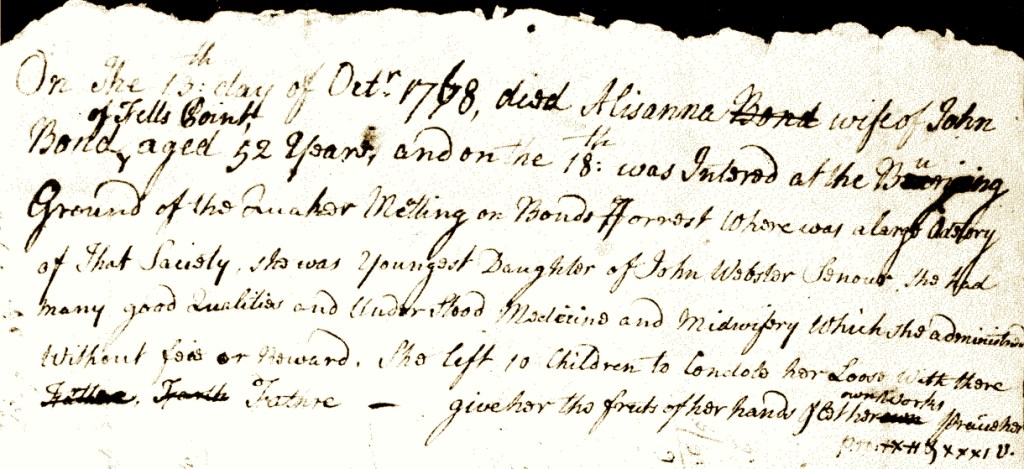 On The 13:th day of Octr. 1768, died Alisanna Bond wife of John
of Fells Point,
Bond, aged 52 Years, and on the 18:th was Intered at the Burying
Ground of the Quaker Metting on Bonds Forrest Where was a large
of That Saciely. She was Youngest Daughter of John Webster Senour, she had
many good Qualities and Under stood Medicine and Midwifery Which she administred
Without feie or Reward. She left 10 Children to Condole her Loose With there
Fathere, Fature — give her the fruts of her hands & let her own
own Works
praise her
XXXI V.